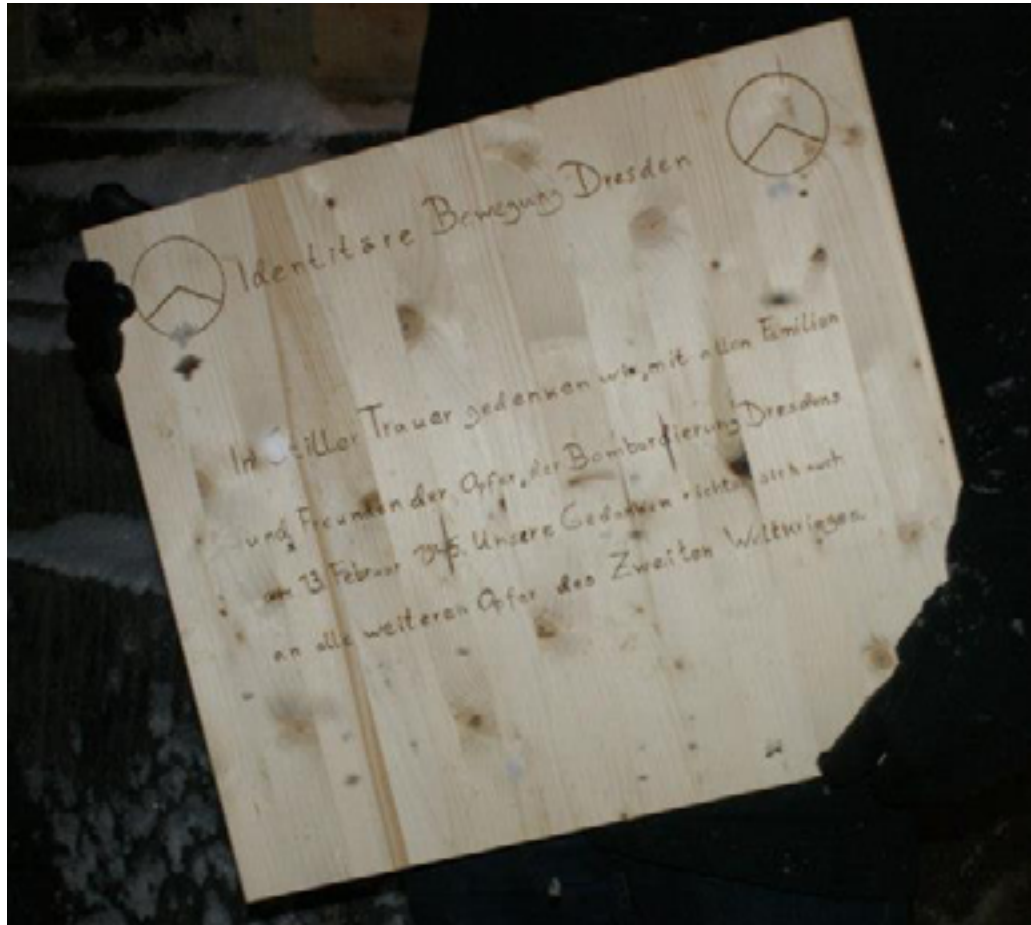 Identitäre Bewegung Dresden
In Stiller Trauer gedenken wir, mit allen Familien
und Freunden der Opfer, der Bombardierung Dresdens
am 13. Februar 1945. Unsere Gedanken richten sich auch
an alle weiteren Opfer des Zweiten Weltkrieges.